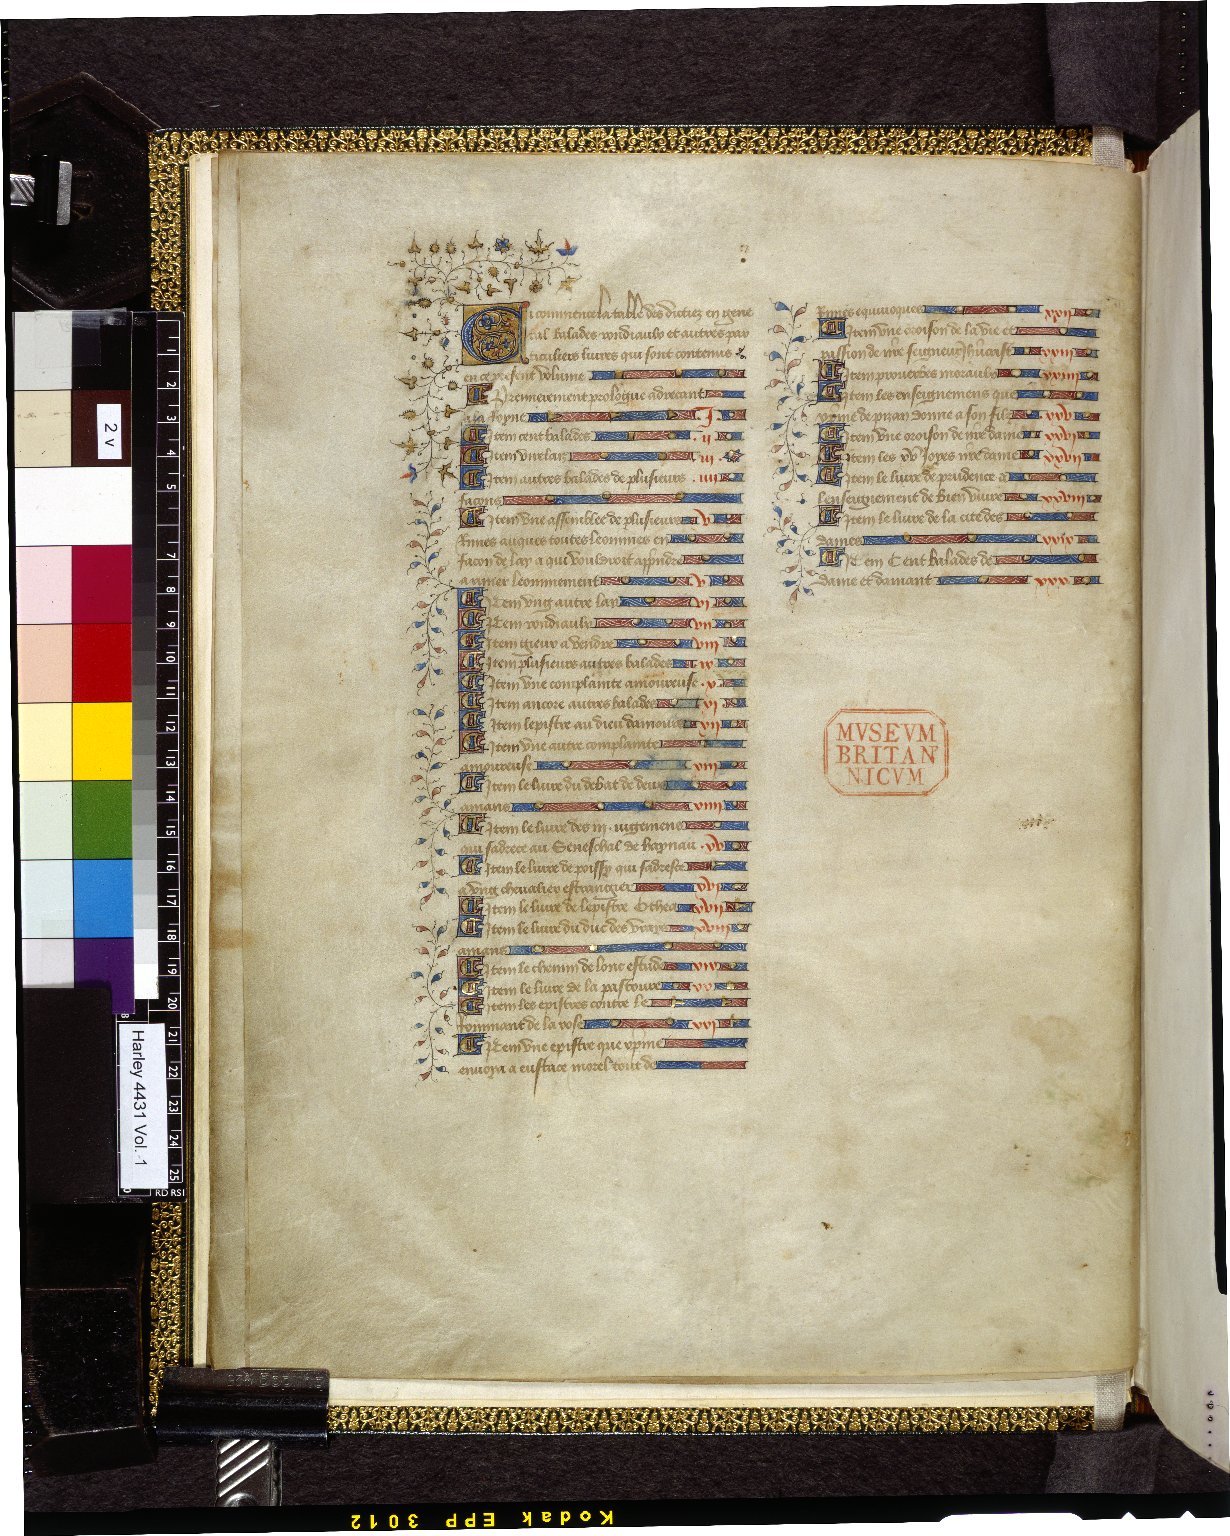 Ci commence la table des dictiez en gene
ral balades rondiaulx et autres par
ticuliers liures qui sont contenus
en ce present volume
Premierement prologue adrecant
a la Royne .j.
Item cent balades .ij.
Item virelaiz .iij.
Item autres balades de plusieurs .iiij.
facons
Item vne assemblee de plusieurs v
Rimes auques toutes leonimes en
facon de lay a qui vouldroit apprendre
a rimer leonimement v
Item vng autre lay vi
Item rondiaulx vii
Item gieux a vendre viii
Item plusieurs autres balades ix
Item vne complainte amoureuse .x.
Item ancore autres balades xi
Item lepistre au dieu damours xii
Item vne autre complainte
amoureuse xiii
Item le liure du debat de deux
amans xiiii
Item le liure des .iii. iugemens
qui sadrece au Seneschal de haynau .xv
Item le liure de poissy qui sadresce
a vng cheualier estrangier xvi
Item le liure de lepistre Othea xvii
Item le liure du duc des vrays xviii
amans
Item le chemin de lonc estude xix
Item le liure de la pastoure xx
Item les epistres contre le
rommant de la rose xxi
Item vne epistre que xpine
enuoya a eustace morel tout de
Rimes equiuoques xxii
Item vne oroison de la vie et
passion de nre seigneur Jhucrist xxiii
Item prouerbes moraulx xxiiii
Item les enseignemens que
xpine de pizan donne a son filz xxv
Item vne oroison de nre dame xxvi
Item les xv Joyes nre dame xxvii
Item le liure de prudence a
lenseignement de bien viure xxviii
Item le liure de la cite des
dames xxix
Item Cent balades de
dame et damant xxx
MVSEVM
BRITAN
NICVM
2 v
Harley 4431 Vol. 1
Kodak EPP 3012